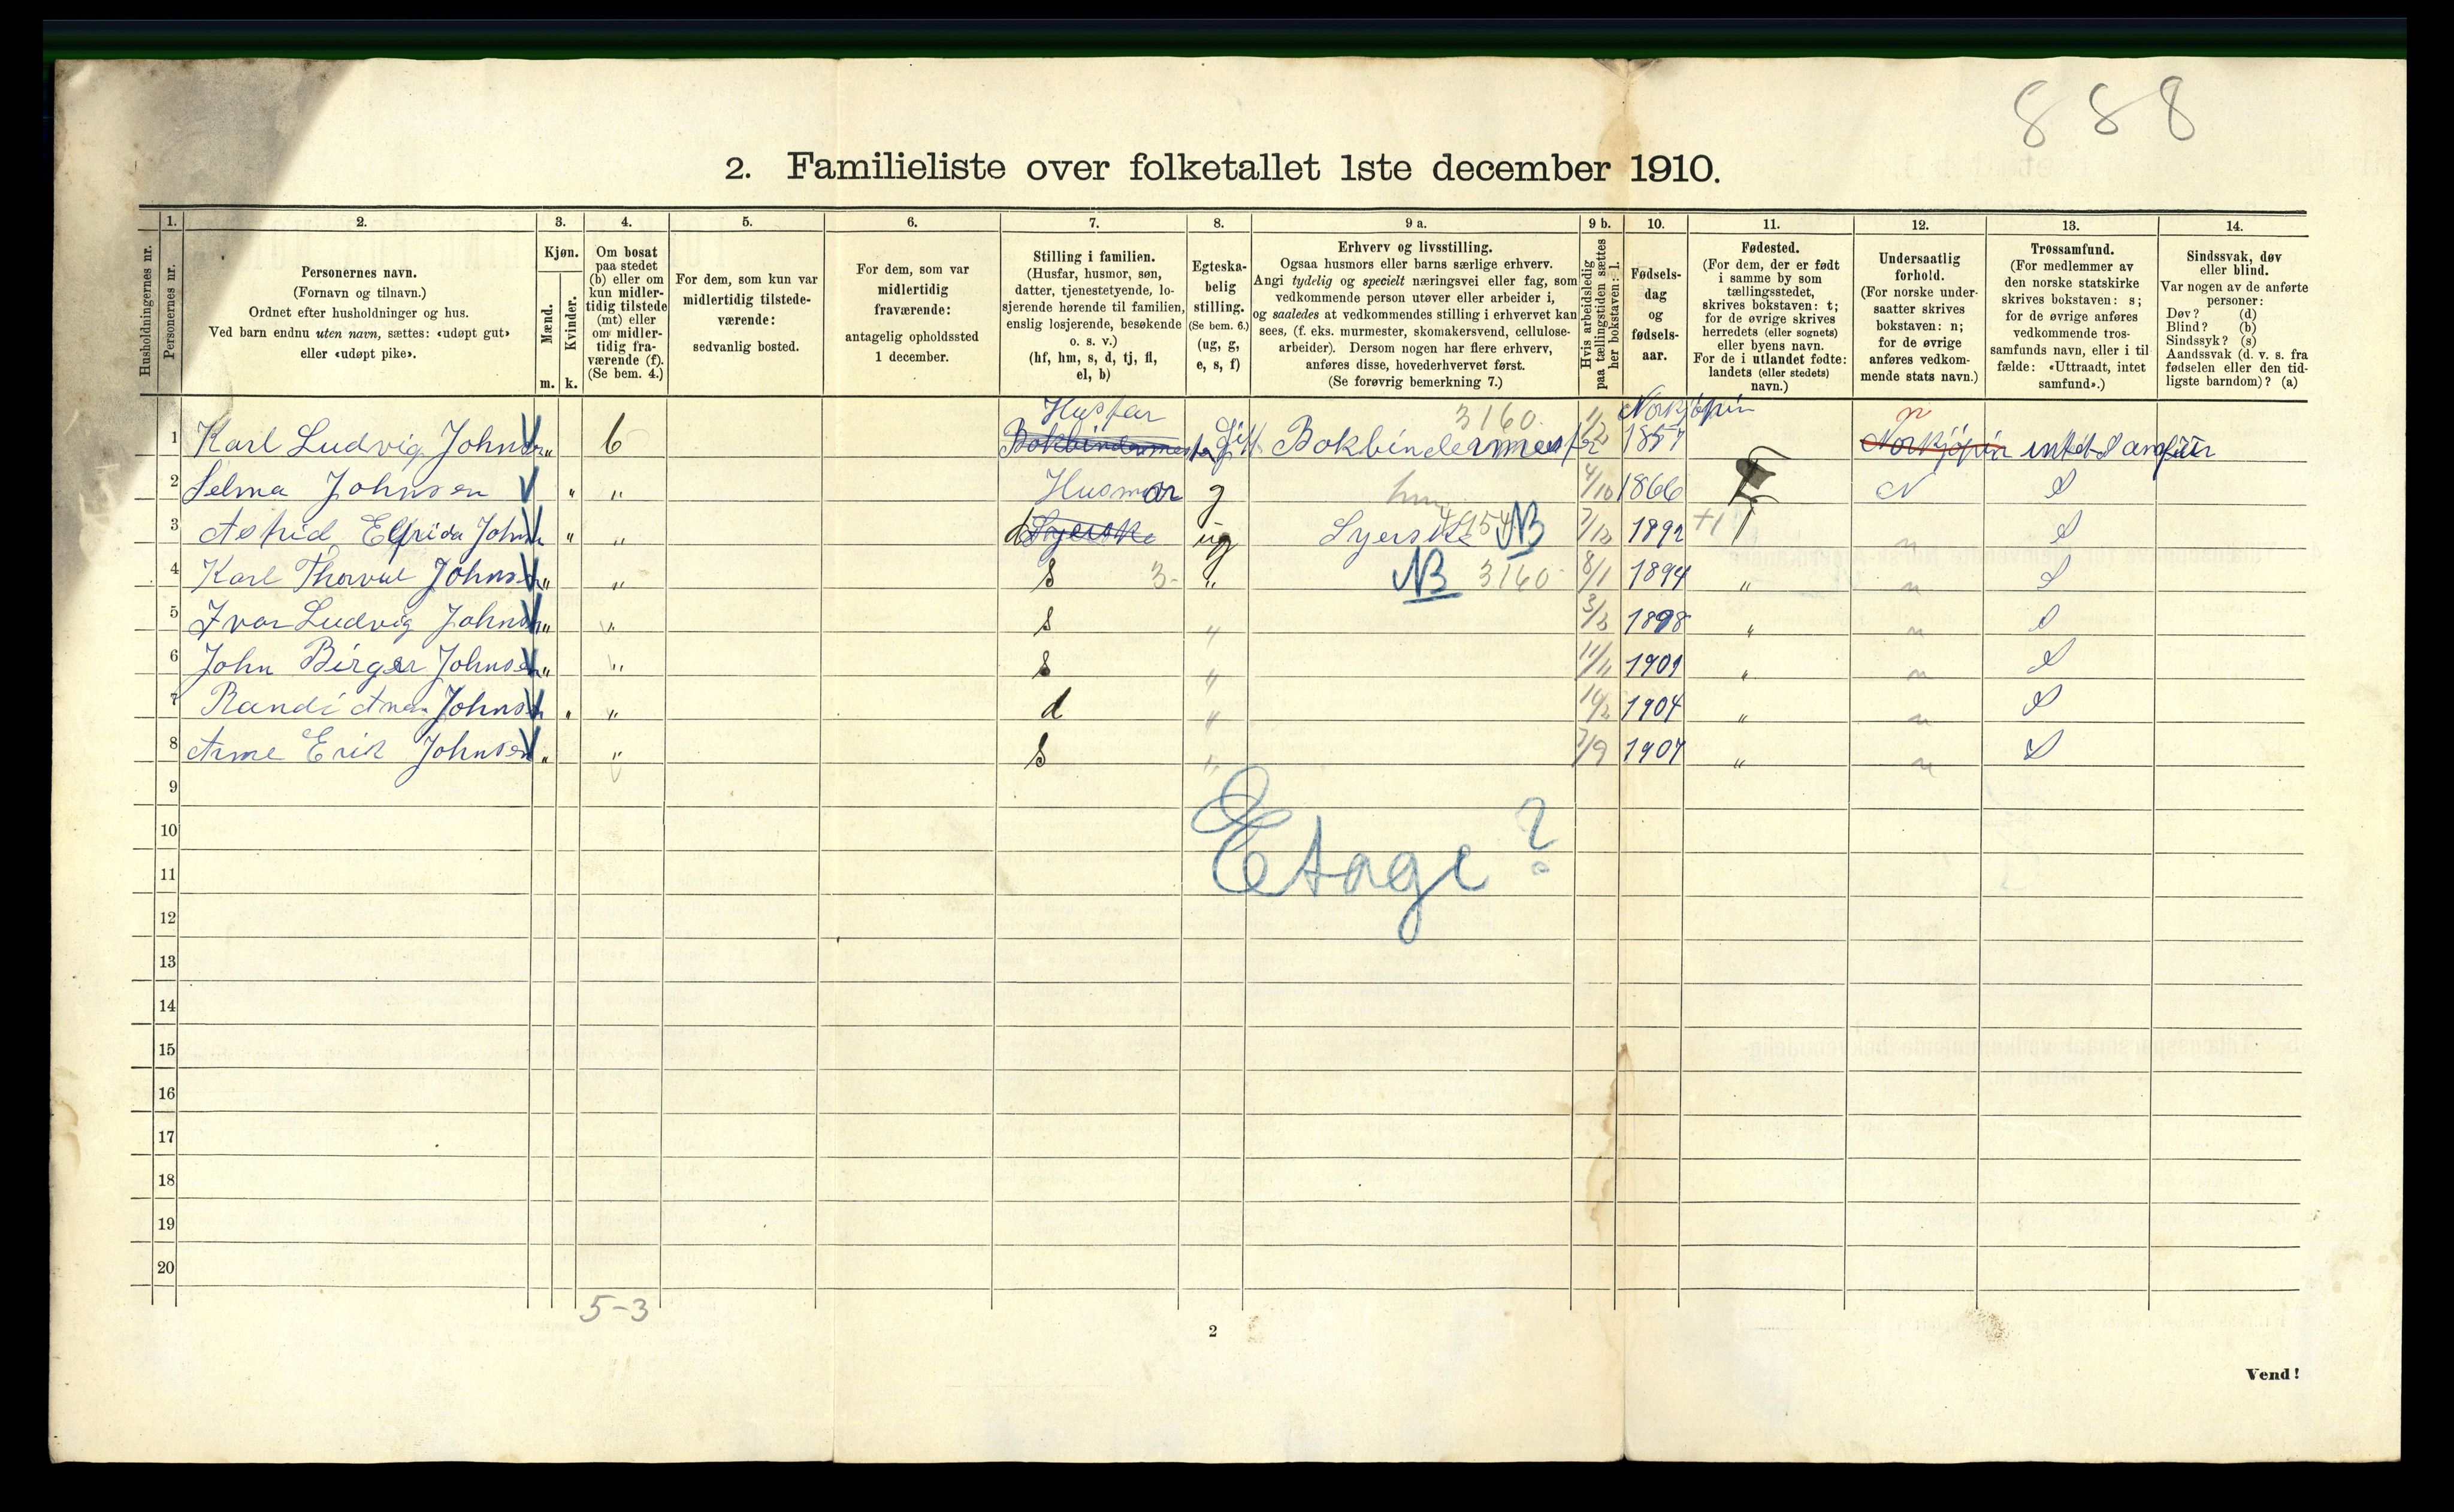 888
2. Familieliste over folketallet 1ste december 1910.
1. 2. 3. 4. 5. 6. 7. 8. 9 a. 9 b. 10. 11. 12. 13. 14.
Husholdningernes nr.
Personernes nr.
Personernes navn.
(Fornavn og tilnavn.)
Ordnet efter husholdninger og hus.
Ved barn endnu uten navn, sættes: «udøpt gut»
eller «udøpt pike».
Kjøn.
Mænd.
Kvinder.
m. k.
Om bosat
paa stedet
(b) eller om
kun midler-
tidig tilstede
(mt) eller
om midler-
tidig fra-
værende (f).
(Se bem. 4.)
For dem, som kun var
midlertidig tilstede-
værende:
sedvanlig bosted.
For dem, som var
midlertidig
fraværende:
antagelig opholdssted
1 december.
Stilling i familien.
(Husfar, husmor, søn,
datter, tjenestetyende, lo-
sjerende hørende til familien,
enslig losjerende, besøkende
o. s. v.)
(hf, hm, s, d, tj, fl,
el, b)
Egteska-
belig
stilling.
(Se bem. 6.)
(ug, g,
e, s, f)
Erhverv og livsstilling.
Ogsaa husmors eller barns særlige erhverv.
Angi tydelig og specielt næringsvei eller fag, som
vedkommende person utøver eller arbeider i,
og saaledes at vedkommendes stilling i erhvervet kan
sees, (f. eks. murmester, skomakersvend, cellulose-
arbeider). Dersom nogen har flere erhverv,
anføres disse, hovederhvervet først.
(Se forøvrig bemerkning 7.)
Hvis arbeidsledig
paa tællingstiden sættes
her bokstaven: l.
Fødsels-
dag
og
fødsels-
aar.
Fødested.
(For dem, der er født
i samme by som
tællingsstedet,
skrives bokstaven: t;
for de øvrige skrives
herredets (eller sognets)
eller byens navn.
For de i utlandet fødte:
landets (eller stedets)
navn.)
Undersaatlig
forhold.
(For norske under-
saatter skrives
bokstaven: n;
for de øvrige
anføres vedkom-
mende stats navn.)
Trossamfund.
(For medlemmer av
den norske statskirke
skrives bokstaven: s;
for de øvrige anføres
vedkommende tros-
samfunds navn, eller i til
fælde: «Uttraadt, intet
samfund».)
Sindssvak, døv
eller blind.
Var nogen av de anførte
personer:
Døv? (d)
Blind? (b)
Sindssyk? (s)
Aandssvak (d. v. s. fra
fødselen eller den tid-
ligste barndom)? (a)
Husfar 3160 Norkjöpin n
1 Karl Ludvig Johnsen " b Bokbindermester Gift Bokbindermester 1857 Norkjöpin intet
2 Selma Johnsen " " Husmor g hm 4/10 1866 N S
3 Astrid Elfrida Johnsen " " d Syerske ug Syerske 4954 NB 7/12 1892 +1 n S
4 Karl Thorval Johnsen " " s 3- " NB 3160 8/1 1894 " n S
5 Ivar Ludvig Johnsen " " s " 3/3 1898 " n S
6 John Birger Johnsen " " s " 11/11 1901 " n S
7 Randi Johnsen " " d " 14/2 1904 " n S
8 Arne Erik Johnsen " " s " 7/9 1907 " n S
9
10
Etage?
11
12
13
14
15
16
17
18
19
20
5-3
2
Vend!